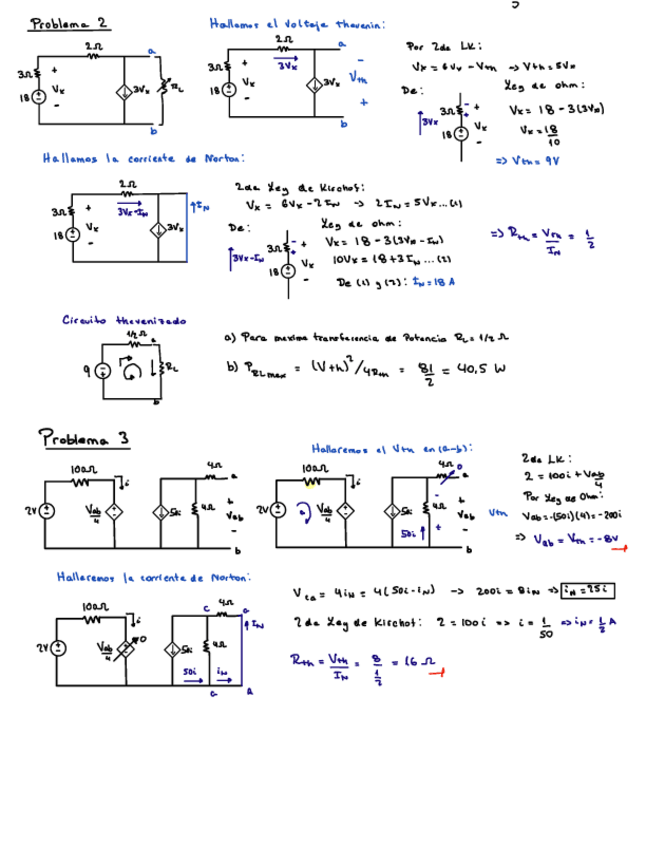 Problema 2
Hallamos el voltaje thevenin:
2Ω
a
3Ω
+
Vx
-
18
3Vx
RL
b
2Ω
a
3Vx
3Ω
+
Vx
-
18
3Vx
-
Vth
+
b
Por 2da LK:
Vx = 6Vx - Vth → Vth = 5Vx
De:
Ley de ohm:
3Vx
3Ω
- +
+
18
Vx
-
Vx = 18 - 3(3Vx)
Vx = 18/10
=> Vth = 9V
Hallamos la corriente de Norton:
2Ω
3Vx-IN
3Ω
+
Vx
-
18
3Vx
IN
2da Ley de Kirchot:
Vx = 6Vx - 2IN → 2IN = 5Vx ...(1)
De:
Ley de ohm:
3Vx-IN
3Ω
- +
+
18
Vx
-
Vx = 18 - 3(3Vx - IN)
10Vx = 18 + 3IN ...(2)
De (1) y (2): IN = 18 A
=> Rth = Vth/IN = 1/2
Circuito thevenizado
1/2Ω
a
9
RL
b
a) Para maxima transferencia de Potencia RL = 1/2 Ω
b) PRLmax = (Vth)²/4Rth = 81/2 = 40,5 W
Problema 3
Hallaremos el Vth en (a-b):
100Ω
i
2V
Vab/4
5ki
4Ω
4Ω
a
+
Vab
-
b
100Ω
i
2V
Vab/4
5ki
50i
4Ω
0
4Ω
-
+
a
+
Vab
-
b
Vth
2da LK:
2 = 100i + Vab/4
Por Ley de Ohm:
Vab = -(50i)(4) = -200i
=> Vab = Vth = -8V
Hallaremos la corriente de Norton:
100Ω
i
2V
Vab/4
0
5ki
50i
iN
c
4Ω
4Ω
a
IN
c
a
Vca = 4iN = 4(50i - iN) → 200i = 8iN => iN = 25i
2da Ley de Kirchot: 2 = 100i => i = 1/50 => iN = 1/2 A
Rth = Vth/IN = 8/(1/2) = 16 Ω